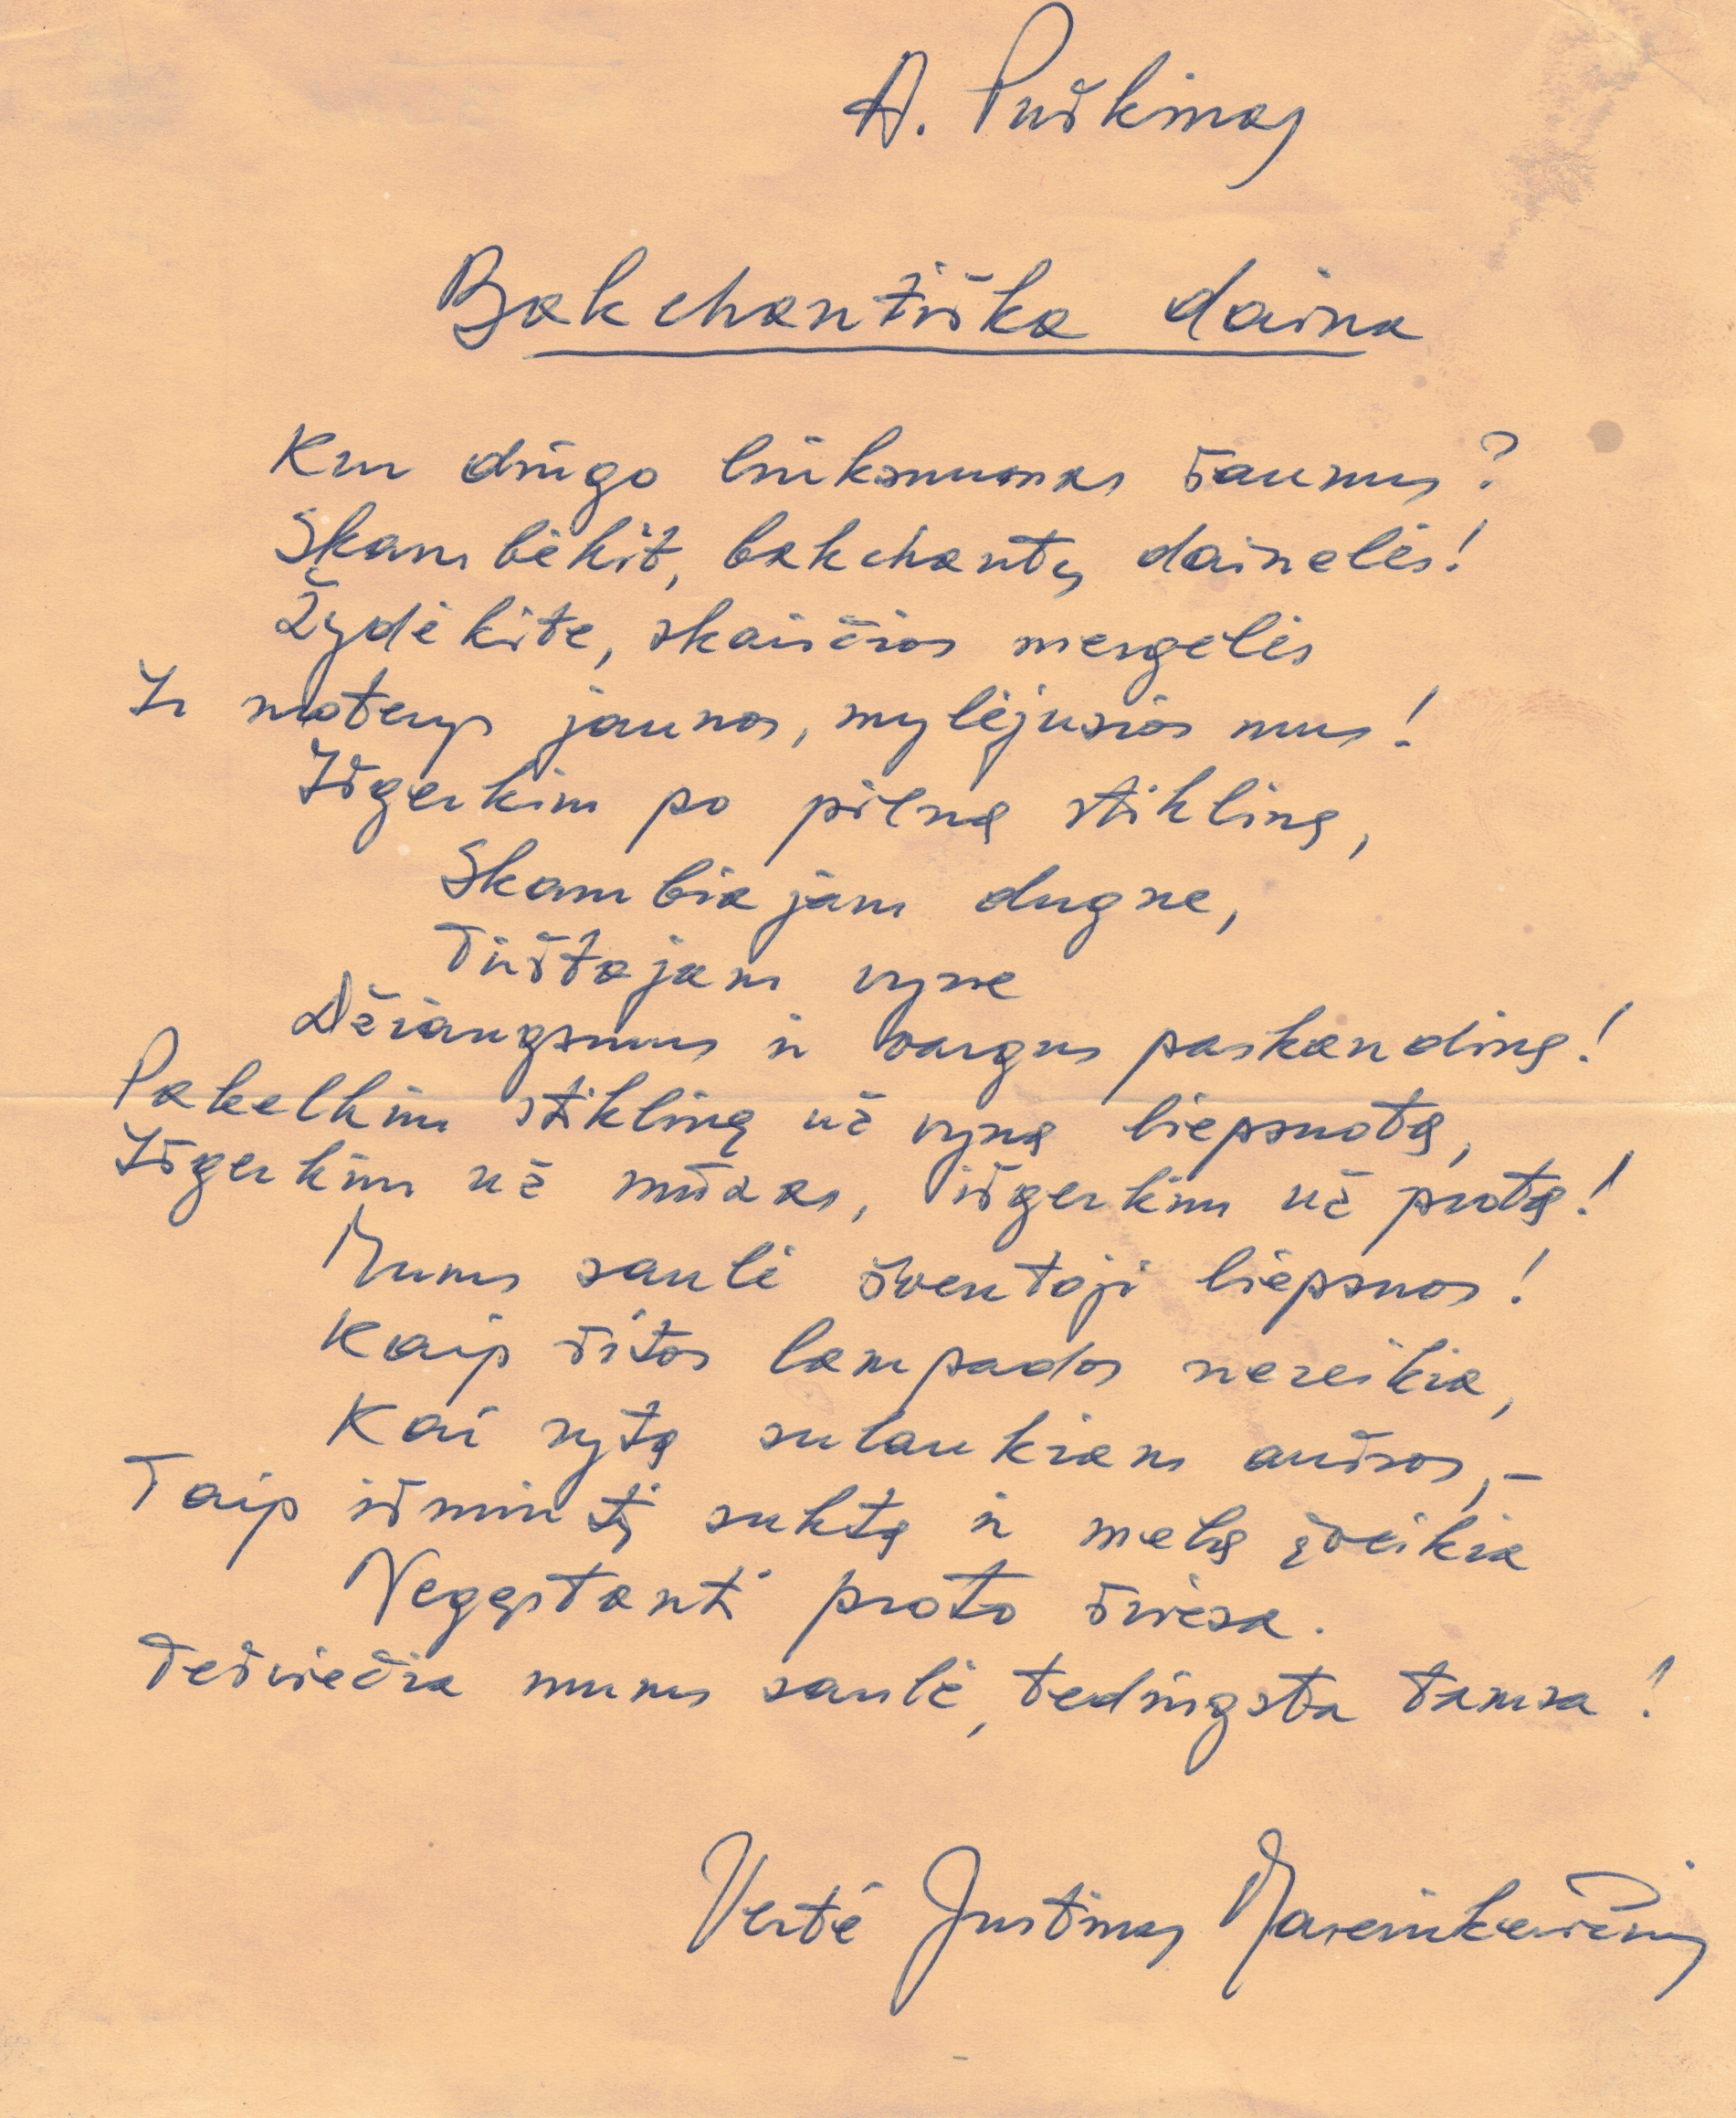 A. Puškinas
Bakchantiška daina
Kur dingo linksmumas šaunus?
Skambėkit, bakchantų dainelės!
Žydėkite, skaisčios mergelės
Ir moterys jaunos, mylėjusios mus!
Išgerkim po pilną stiklinę,
Skambiajam dugne,
Tirštajam vyne
Džiaugsmus ir vargus paskandinę!
Pakelkim stiklinę už vyną liepsnotą,
Išgerkim už mūzas, išgerkim už protą!
Mums saulė šventoji liepsnos!
Kaip šitos lampados nereikia,
Kai rytą sulaukiam aušros,-
Taip išmintį suktą ir melą įveikia
Negęstanti proto šviesa.
Tešviečia mums saulė, tedingsta tamsa!
Vertė Justinas Marcinkevičius